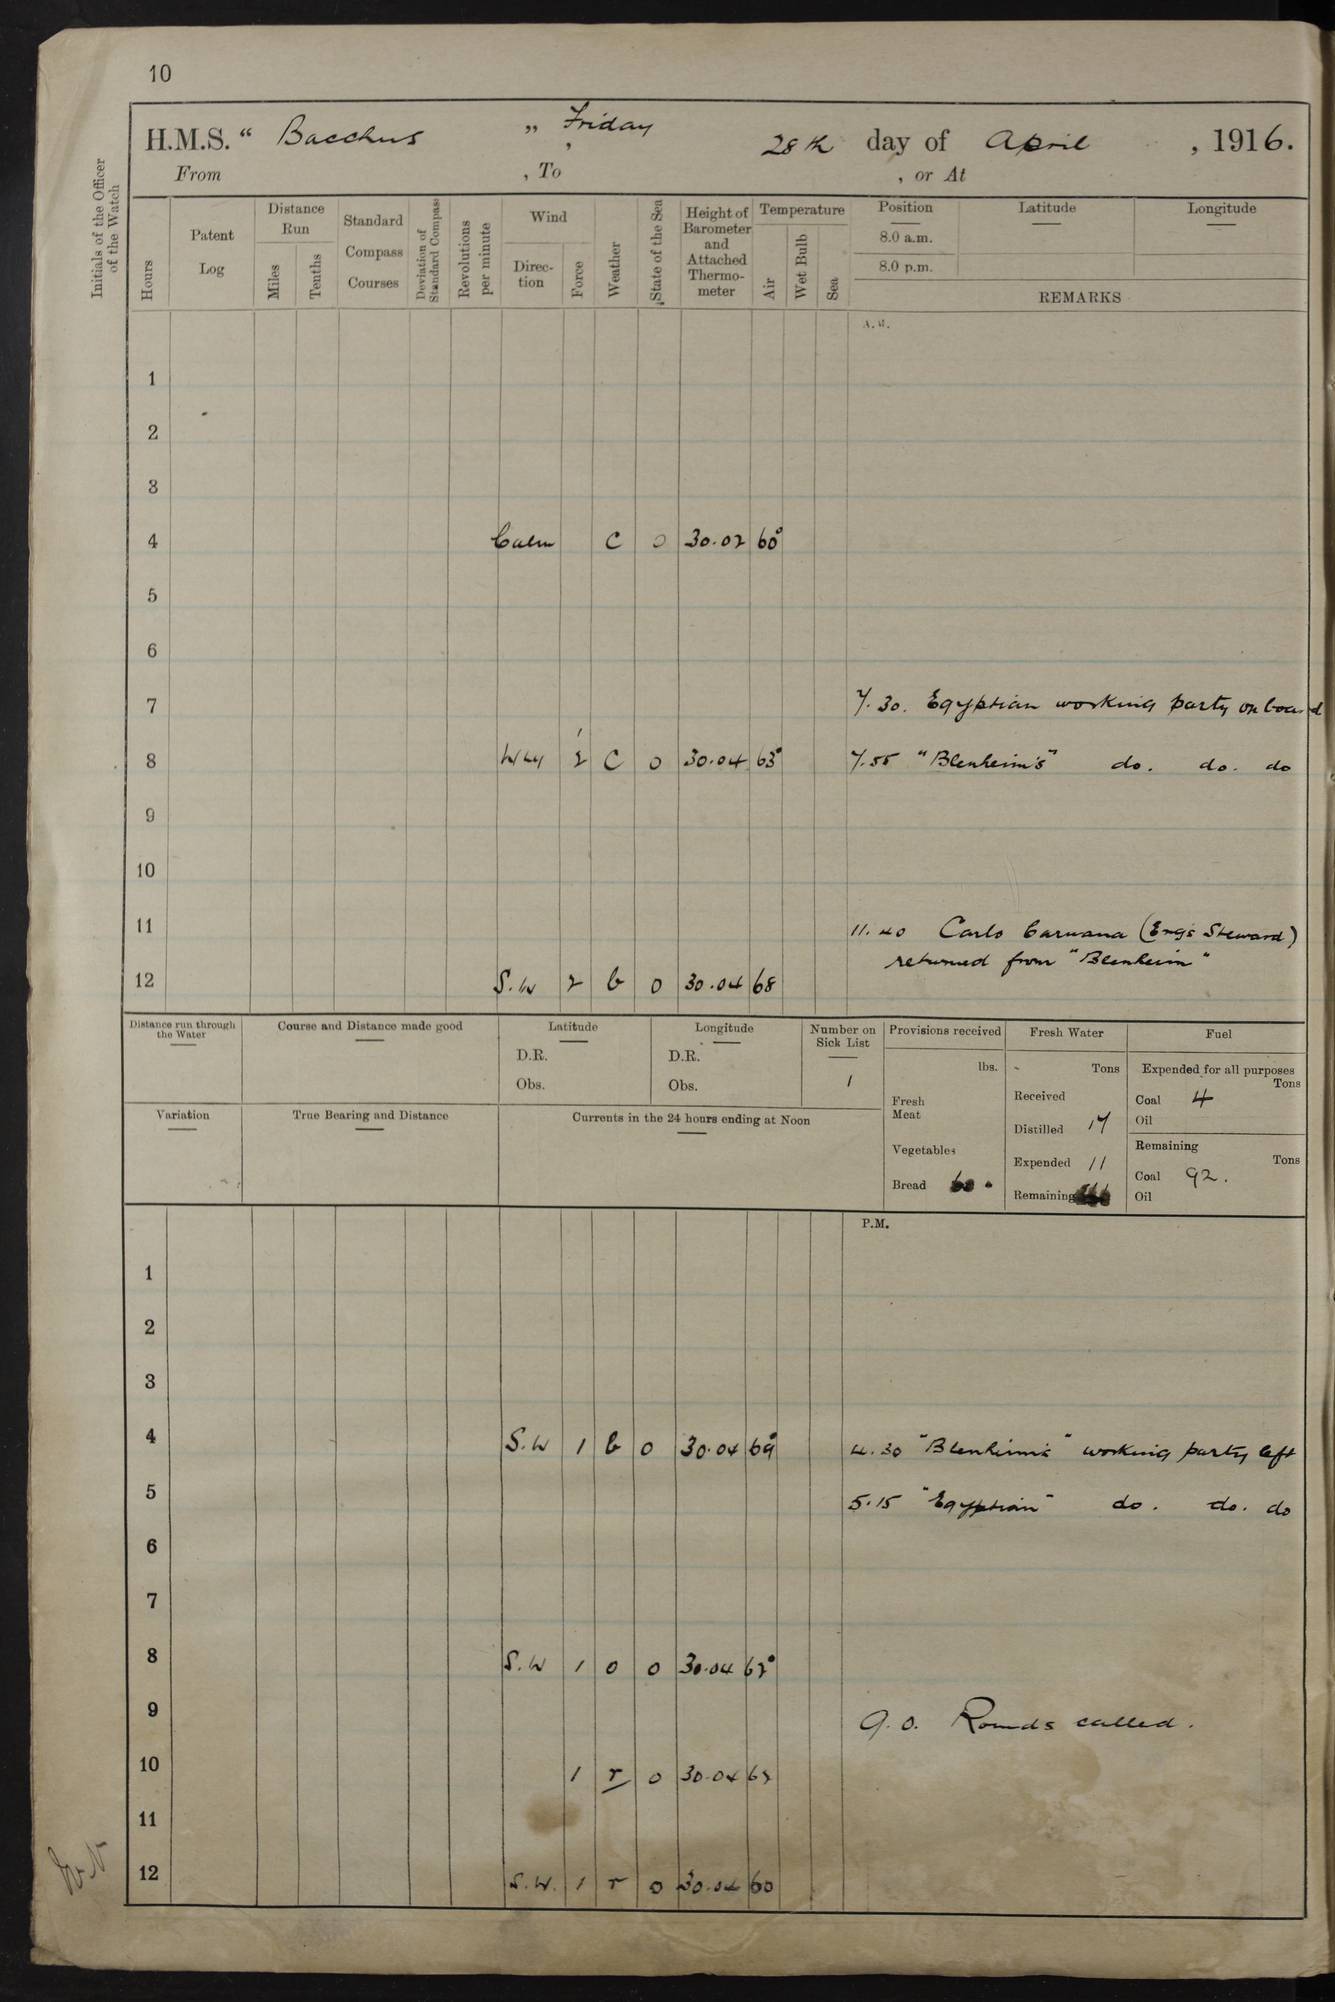 10
H.M.S. “ Bacchus ” Friday , 28th day of April , 1916.
From , To , or At
Initials of the Officer of the Watch
Hours
Patent Log
Distance Run
Miles
Tenths
Standard Compass Courses
Deviation of Standard Compass
Revolutions per minute
Wind
Direction
Force
Weather
State of the Sea
Height of Barometer and Attached Thermometer
Temperature
Air
Wet Bulb
Sea
Position Latitude Longitude
8.0 a.m.
8.0 p.m.
REMARKS
A.M.
1
2
3
4 Calm C 0 30.02 60°
5
6
7 7.30. Egyptian working party on board
8 Wly 1 2 C 0 30.04 63° 7.55 "Blenheim's" do. do. do
9
10
11 11.40 Carlo Caruana (Eng's Steward)
returned from "Blenheim"
12 S.W 2 b 0 30.04 68
Distance run through the Water
Course and Distance made good
Latitude
D.R.
Obs.
Longitude
D.R.
Obs.
Number on Sick List
1
Variation
True Bearing and Distance
Currents in the 24 hours ending at Noon
Provisions received
lbs.
Fresh Meat
Vegetables
Bread
Fresh Water
Tons
Received
Distilled 17
Expended 11
Remaining
Fuel
Expended for all purposes
Tons
Coal 4
Oil
Remaining
Tons
Coal 92.
Oil
P.M.
1
2
3
4 S.W 1 b 0 30.04 69° 4.30 "Blenheim's" working party left
5 5.15 "Egyptian" do. do. do
6
7
8 S.W 1 0 0 30.04 62°
9 9.0. Rounds called.
10 1 r 0 30.04
11
12 S.W. 1 r 0 30.04 60